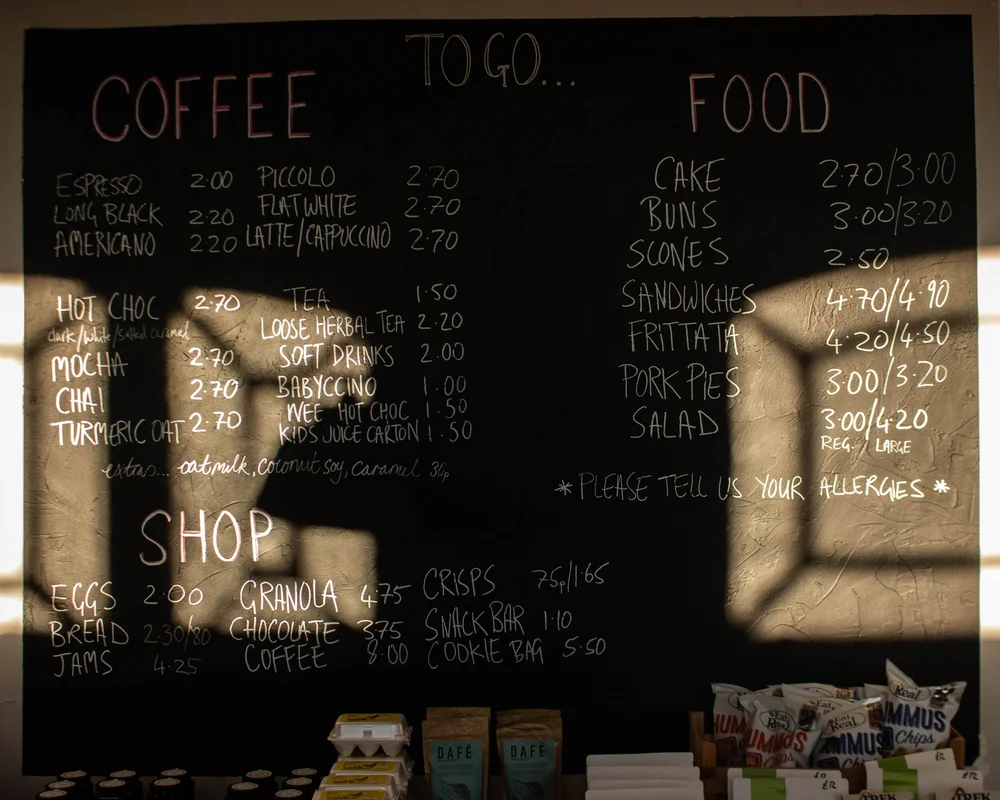 TO GO...
COFFEE
ESPRESSO 2.00 PICCOLO 2.70
LONG BLACK 2.20 FLAT WHITE 2.70
AMERICANO 2.20 LATTE/CAPPUCCINO 2.70
HOT CHOC 2.70 TEA 1.50
dark/white/salted caramel LOOSE HERBAL TEA 2.20
MOCHA 2.70 SOFT DRINKS 2.00
CHAI 2.70 BABYCCINO 1.00
TURMERIC OAT 2.70 WEE HOT CHOC 1.50
KIDS JUICE CARTON 1.50
extras... oatmilk, coconut soy, caramel 3
FOOD
CAKE 2.70/3.00
BUNS 3.00/3.20
SCONES 2.50
SANDWICHES 4.70/4.90
FRITTATA 4.20/4.50
PORK PIES 3.00/3.20
SALAD 3.00/4.20
REG. LARGE
* PLEASE TELL US YOUR ALLERGIES *
SHOP
EGGS 2.00 GRANOLA 4.75 CRISPS 75p/1.65
BREAD 2.30/80 CHOCOLATE 3.75 SNACK BAR 1.10
JAMS 4.25 COFFEE 8.00 COOKIE BAG 5.50
DAFÉ
DAFÉ
Eat Real
Real
HUMMUS
UMMUS
Chips
MMUS
Chips
£12
£12
TREK